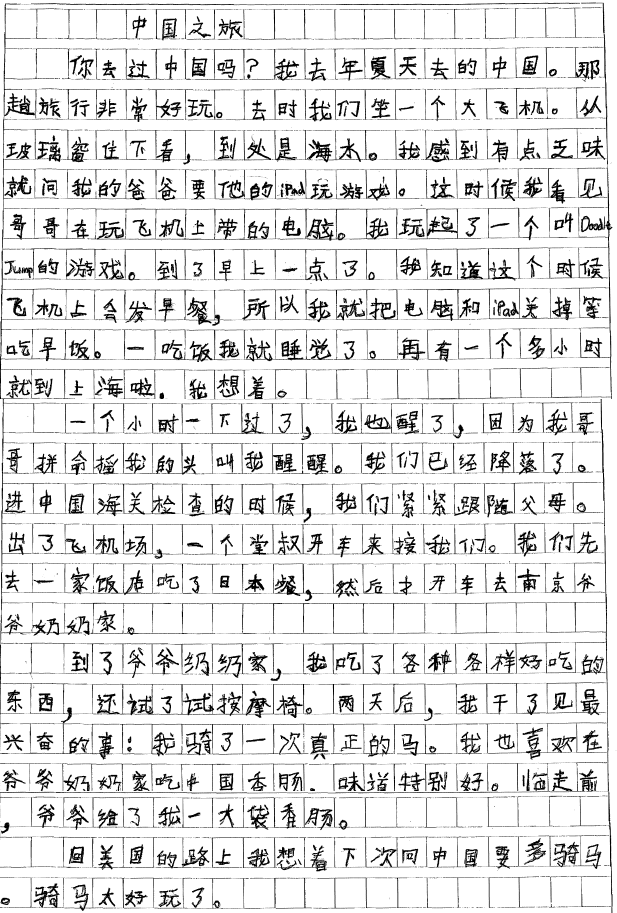 中国之旅
你去过中国吗？我去年夏天去的中国。那
趟旅行非常好玩。去时我们坐一个大飞机。从
玻璃窗往下看，到处是海水。我感到有点乏味
就问我的爸爸要他的iPad玩游戏。这时候我看见
哥哥在玩飞机上带的电脑。我玩起了一个叫Doodle
Jump的游戏。到了早上一点了。我知道这个时候
飞机上会发早餐，所以我就把电脑和iPad关掉等
吃早饭。一吃饭我就睡觉了。再有一个多小时
就到上海啦．我想着。
一个小时一下过了，我也醒了，因为我哥
哥拼命摇我的头叫我醒醒。我们已经降落了。
进中国海关检查的时候，我们紧紧跟随父母。
出了飞机场，一个堂叔开车来接我们。我们先
去一家饭店吃了日本餐，然后才开车去南京爷
爷奶奶家。
到了爷爷奶奶家，我吃了各种各样好吃的
东西，还试了试按摩椅。两天后，我干了见最
兴奋的事：我骑了一次真正的马。我也喜欢在
爷爷奶奶家吃中国香肠．味道特别好。临走前
，爷爷给了我一大袋香肠。
回美国的路上我想着下次回中国要多骑马
。骑马太好玩了。